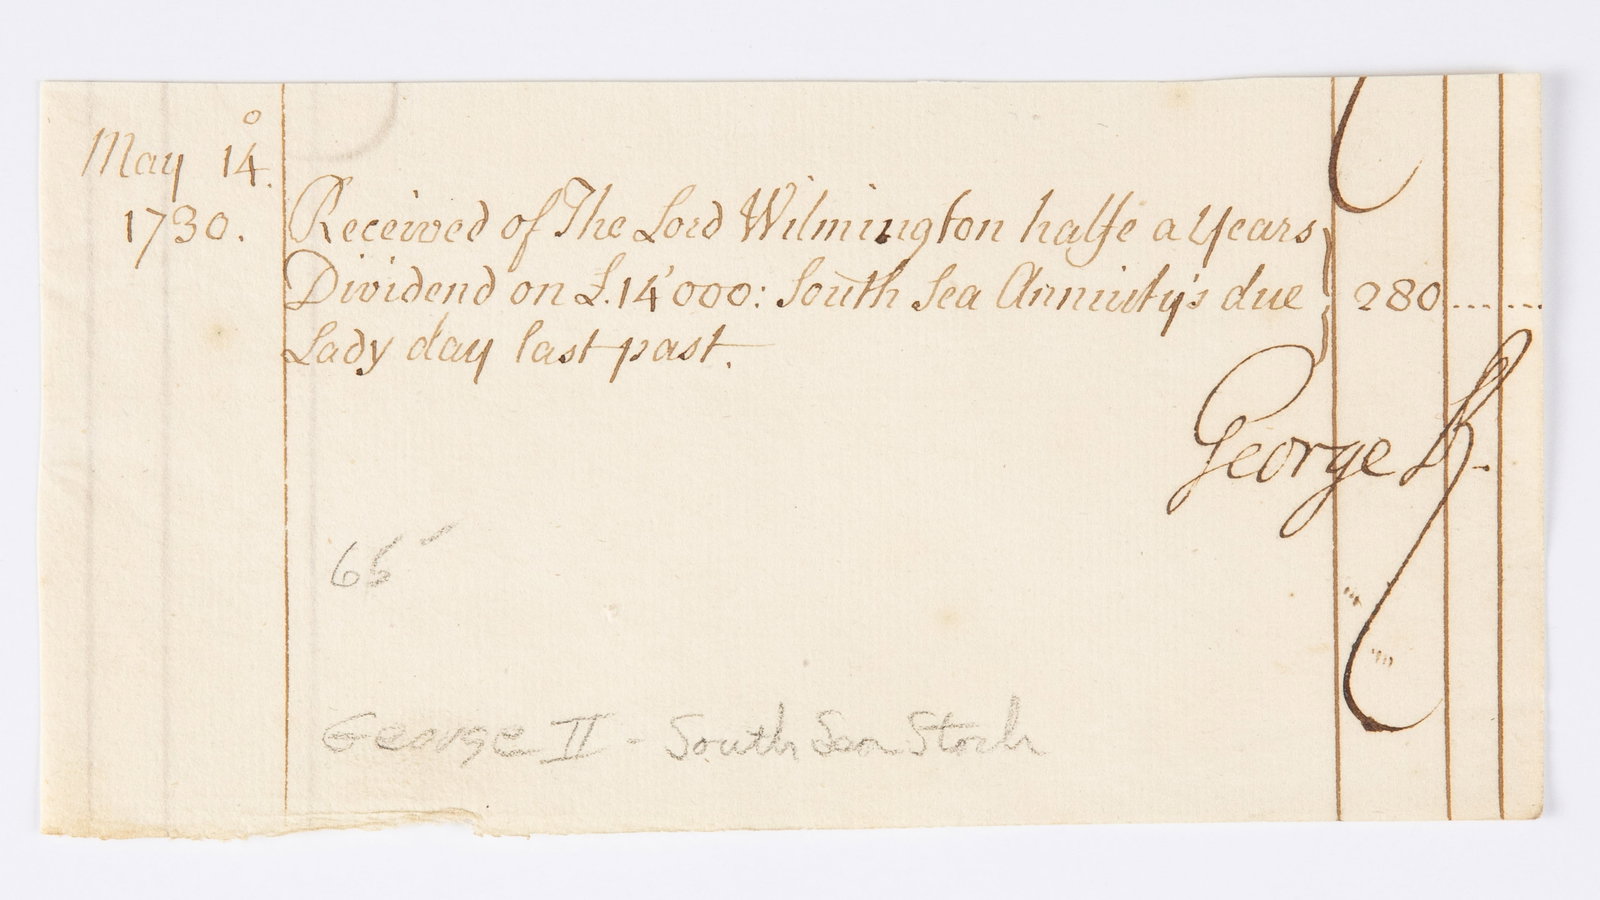 May 14.º
1730.
Received of The Lord Wilmington halfe a Years
Dividend on £.14'000: South Sea Annuity's due } 280 ... ...
Lady day last past.
George R.
65
George II - South Sea Stock